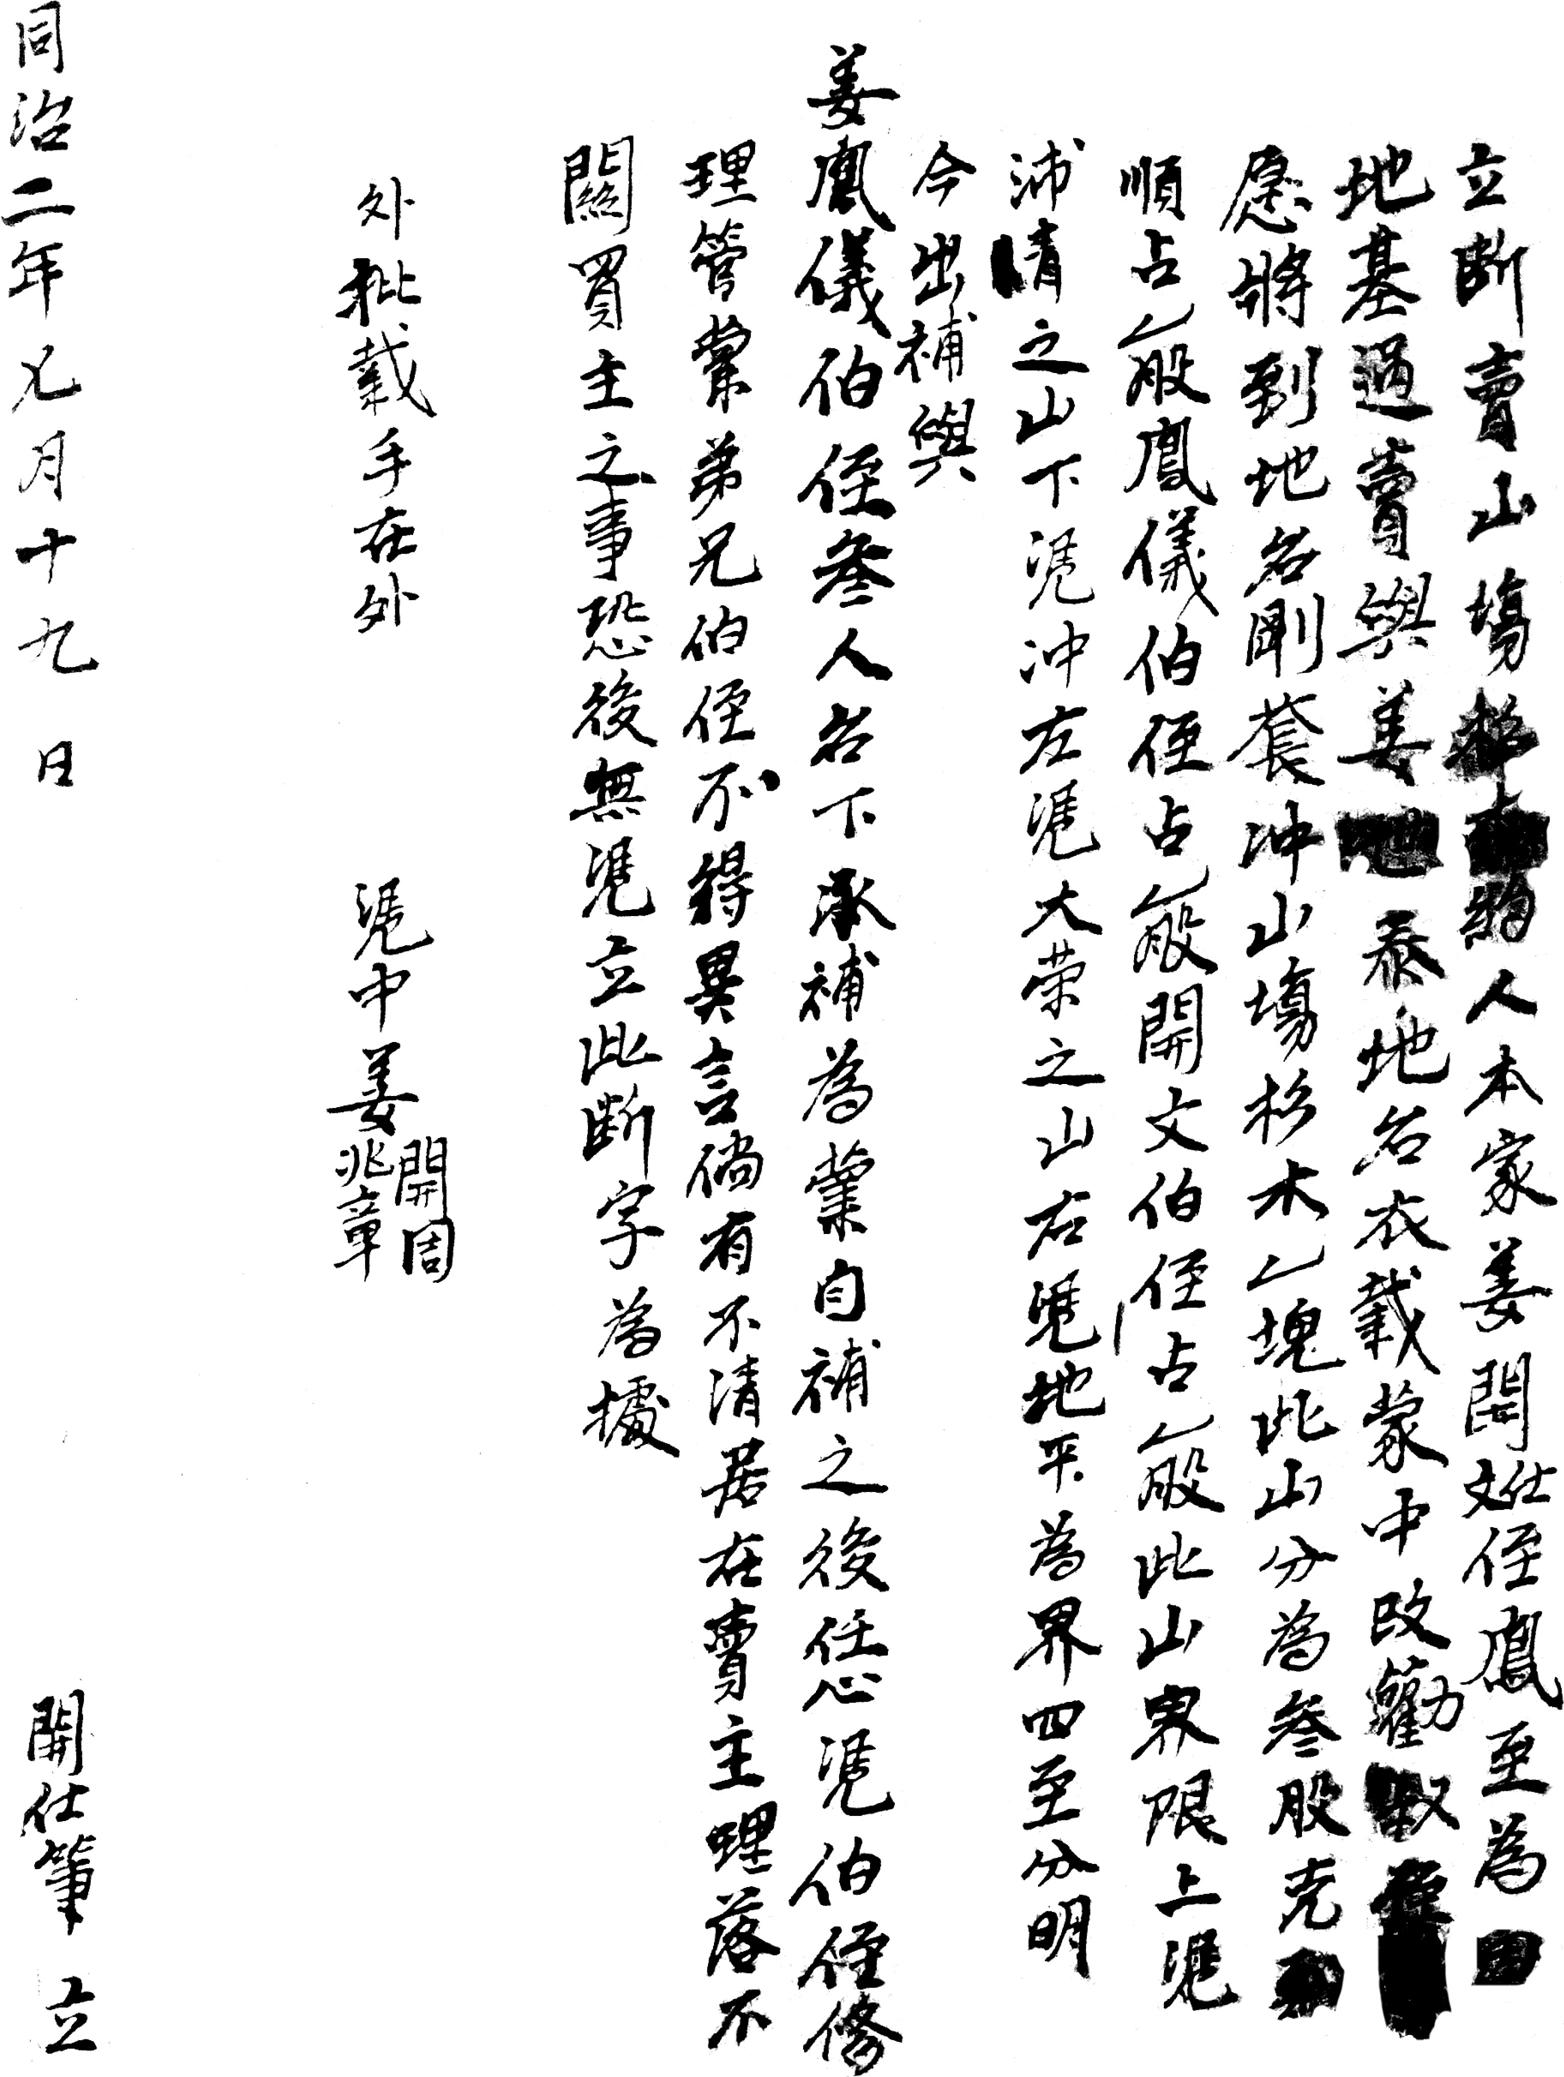 立斷賣山塲杉木約人本家姜開文仕侄鳳至為
地基過賣與姜 泰地名衣載蒙中改勸
愿將到地名剛套冲山塲杉木乙塊此山分為叁股克
順占乙股鳳儀伯侄占乙股開文伯侄占乙股此山界限上慿
沛清之山下慿冲左慿大荣之山右慿地平為界四至分明
今出補與
姜鳳儀伯侄叁人名下承補為業自補之後任怂慿伯侄修
理管業弟兄伯侄不得異言倘有不清居在賣主理落不
關買主之事恐後無慿立此斷字為據
外批載手在外
慿中姜開周
兆章
同治二年九月十九日
開仕筆立